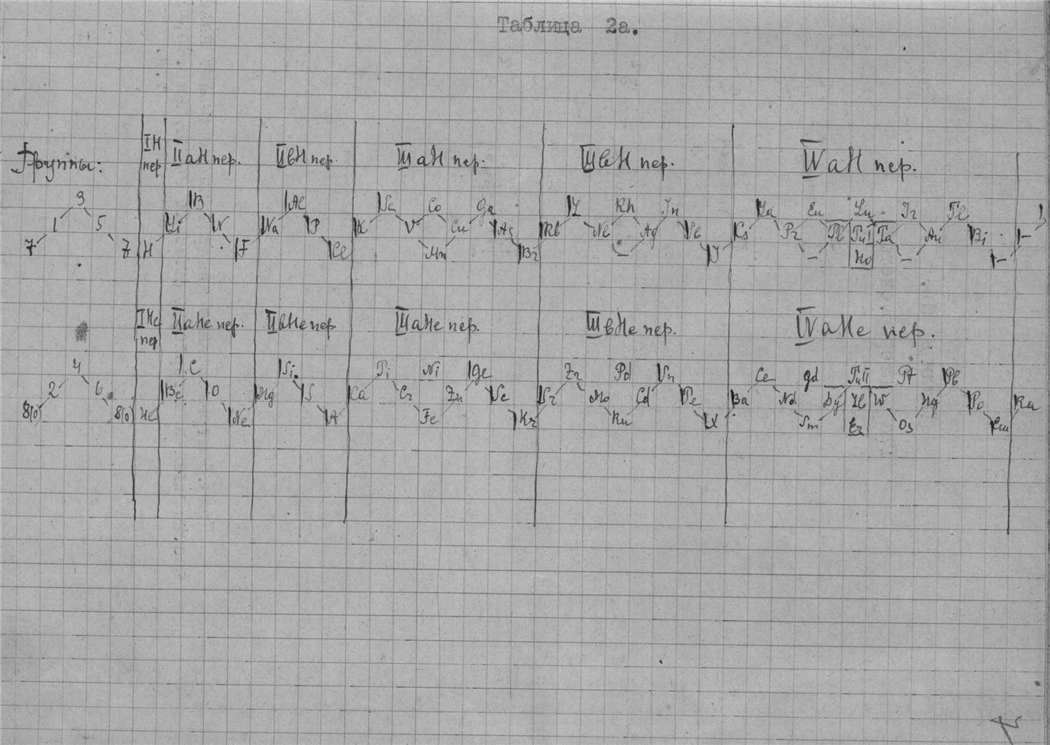 Таблица 2а.
Группы: IН пер IIаН пер. IIвН пер. IIIаН пер. IIIвН пер. IVаН пер.
3 B Al Sc Co Ga Y Rh In La Eu Lu Ir Tl
1 5 Li N Na P K V Cu As Rb Nb Ag Sb Cs Pr Tb TuI Ta Au Bi
7 7 H F Cl Mn Br — J — Ho — —
IHe пер IIаHe пер. IIвHe пер IIIаHe пер. IIIвHe пер. IVаHe пер.
4 C Si Ti Ni Ge Zr Pd Sn Ce Gd TuII Pt Pb
2 6 Be O Mg S Ca Cr Zn Se Sr Mo Cd Te Ba Nd Dy Yb W Hg Po Ra
8(0) 8(0) He Ne A Fe Kr Ru X Sm Er Os Em